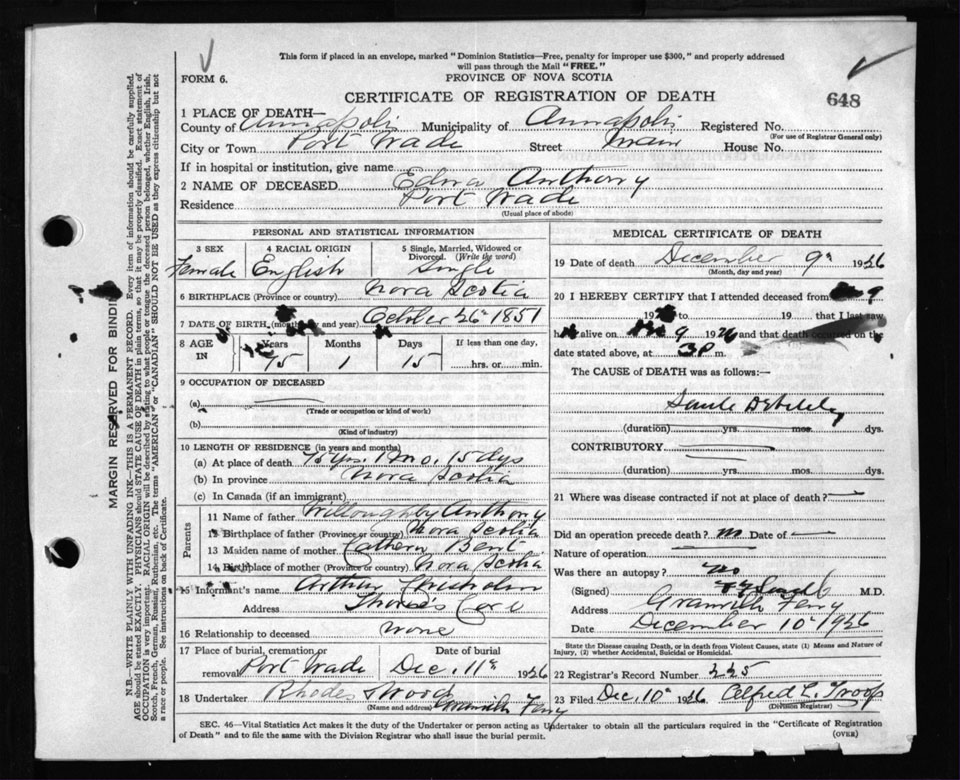 This form if placed in an envelope, marked "Dominion Statistics—Free, penalty for improper use $300," and properly addressed
will pass through the Mail "FREE."
FORM 6.
PROVINCE OF NOVA SCOTIA
CERTIFICATE OF REGISTRATION OF DEATH
648
1 PLACE OF DEATH—
County of Annapolis Municipality of Annapolis Registered No.
(For use of Registrar General only)
City or Town Port Wade Street Main House No.
If in hospital or institution, give name
2 NAME OF DECEASED Edna Anthony
Residence Port Wade
(Usual place of abode)
PERSONAL AND STATISTICAL INFORMATION
3 SEX 4 RACIAL ORIGIN 5 Single, Married, Widowed or Divorced. (Write the word)
Female English Single
6 BIRTHPLACE (Province or country) Nova Scotia
7 DATE OF BIRTH (month, day and year) October 26th 1851
8 AGE IN Years Months Days If less than one day,
75 1 15 hrs. or min.
9 OCCUPATION OF DECEASED
(a)
(Trade or occupation or kind of work)
(b)
(Kind of industry)
10 LENGTH OF RESIDENCE (in years and months)
(a) At place of death 75 yrs. 1 mo. 15 dys
(b) In province Nova Scotia
(c) In Canada (if an immigrant)
Parents
11 Name of father Willoughby Anthony
12 Birthplace of father (Province or country) Nova Scotia
13 Maiden name of mother Bent
14 Birthplace of mother (Province or country) Nova Scotia
15 Informant's name Arthur Chisholm
Address Thorne's Cove
16 Relationship to deceased none
17 Place of burial, cremation or removal Port Wade Date of burial Dec. 11th 1926
18 Undertaker Rhodes Wood Granville Ferry
(Name and address)
MEDICAL CERTIFICATE OF DEATH
19 Date of death December 9th 1926
(Month, day and year)
20 I HEREBY CERTIFY that I attended deceased from 9
19 to 19 that I last saw
h alive on 9 1926 and that death occurred on the
date stated above, at 3 P m.
The CAUSE of DEATH was as follows:—
Senile Debility
(duration) yrs. mos. dys.
CONTRIBUTORY
(duration) yrs. mos. dys.
21 Where was disease contracted if not at place of death?
Did an operation precede death? Date of
Nature of operation
Was there an autopsy? no
(Signed) M.D.
Address Granville Ferry
Date December 10th 1926
State the Disease causing Death, or in death from Violent Causes, state (1) Means and Nature of
Injury, (2) whether Accidental, Suicidal or Homicidal.
22 Registrar's Record Number 225
23 Filed Dec. 10th 1926 Alfred L. Troop
(Division Registrar)
SEC. 46—Vital Statistics Act makes it the duty of the Undertaker or person acting as Undertaker to obtain all the particulars required in the "Certificate of Registration
of Death" and to file the same with the Division Registrar who shall issue the burial permit.
(OVER)
MARGIN RESERVED FOR BINDING
N.B.—WRITE PLAINLY WITH UNFADING INK—THIS IS A PERMANENT RECORD. Every item of information should be carefully supplied.
AGE should be stated EXACTLY. PHYSICIANS should STATE CAUSE OF DEATH in plain terms, so that it may be properly classified. Exact statement of
OCCUPATION is very important. RACIAL ORIGIN will be described by stating to what people or tongue the deceased person belonged, whether English, Irish,
Scotch, French, German, Russian, Ruthenian, etc. The terms "AMERICAN" or "CANADIAN" SHOULD NOT BE USED as they express citizenship but not
a race or people. See instructions on back of Certificate.